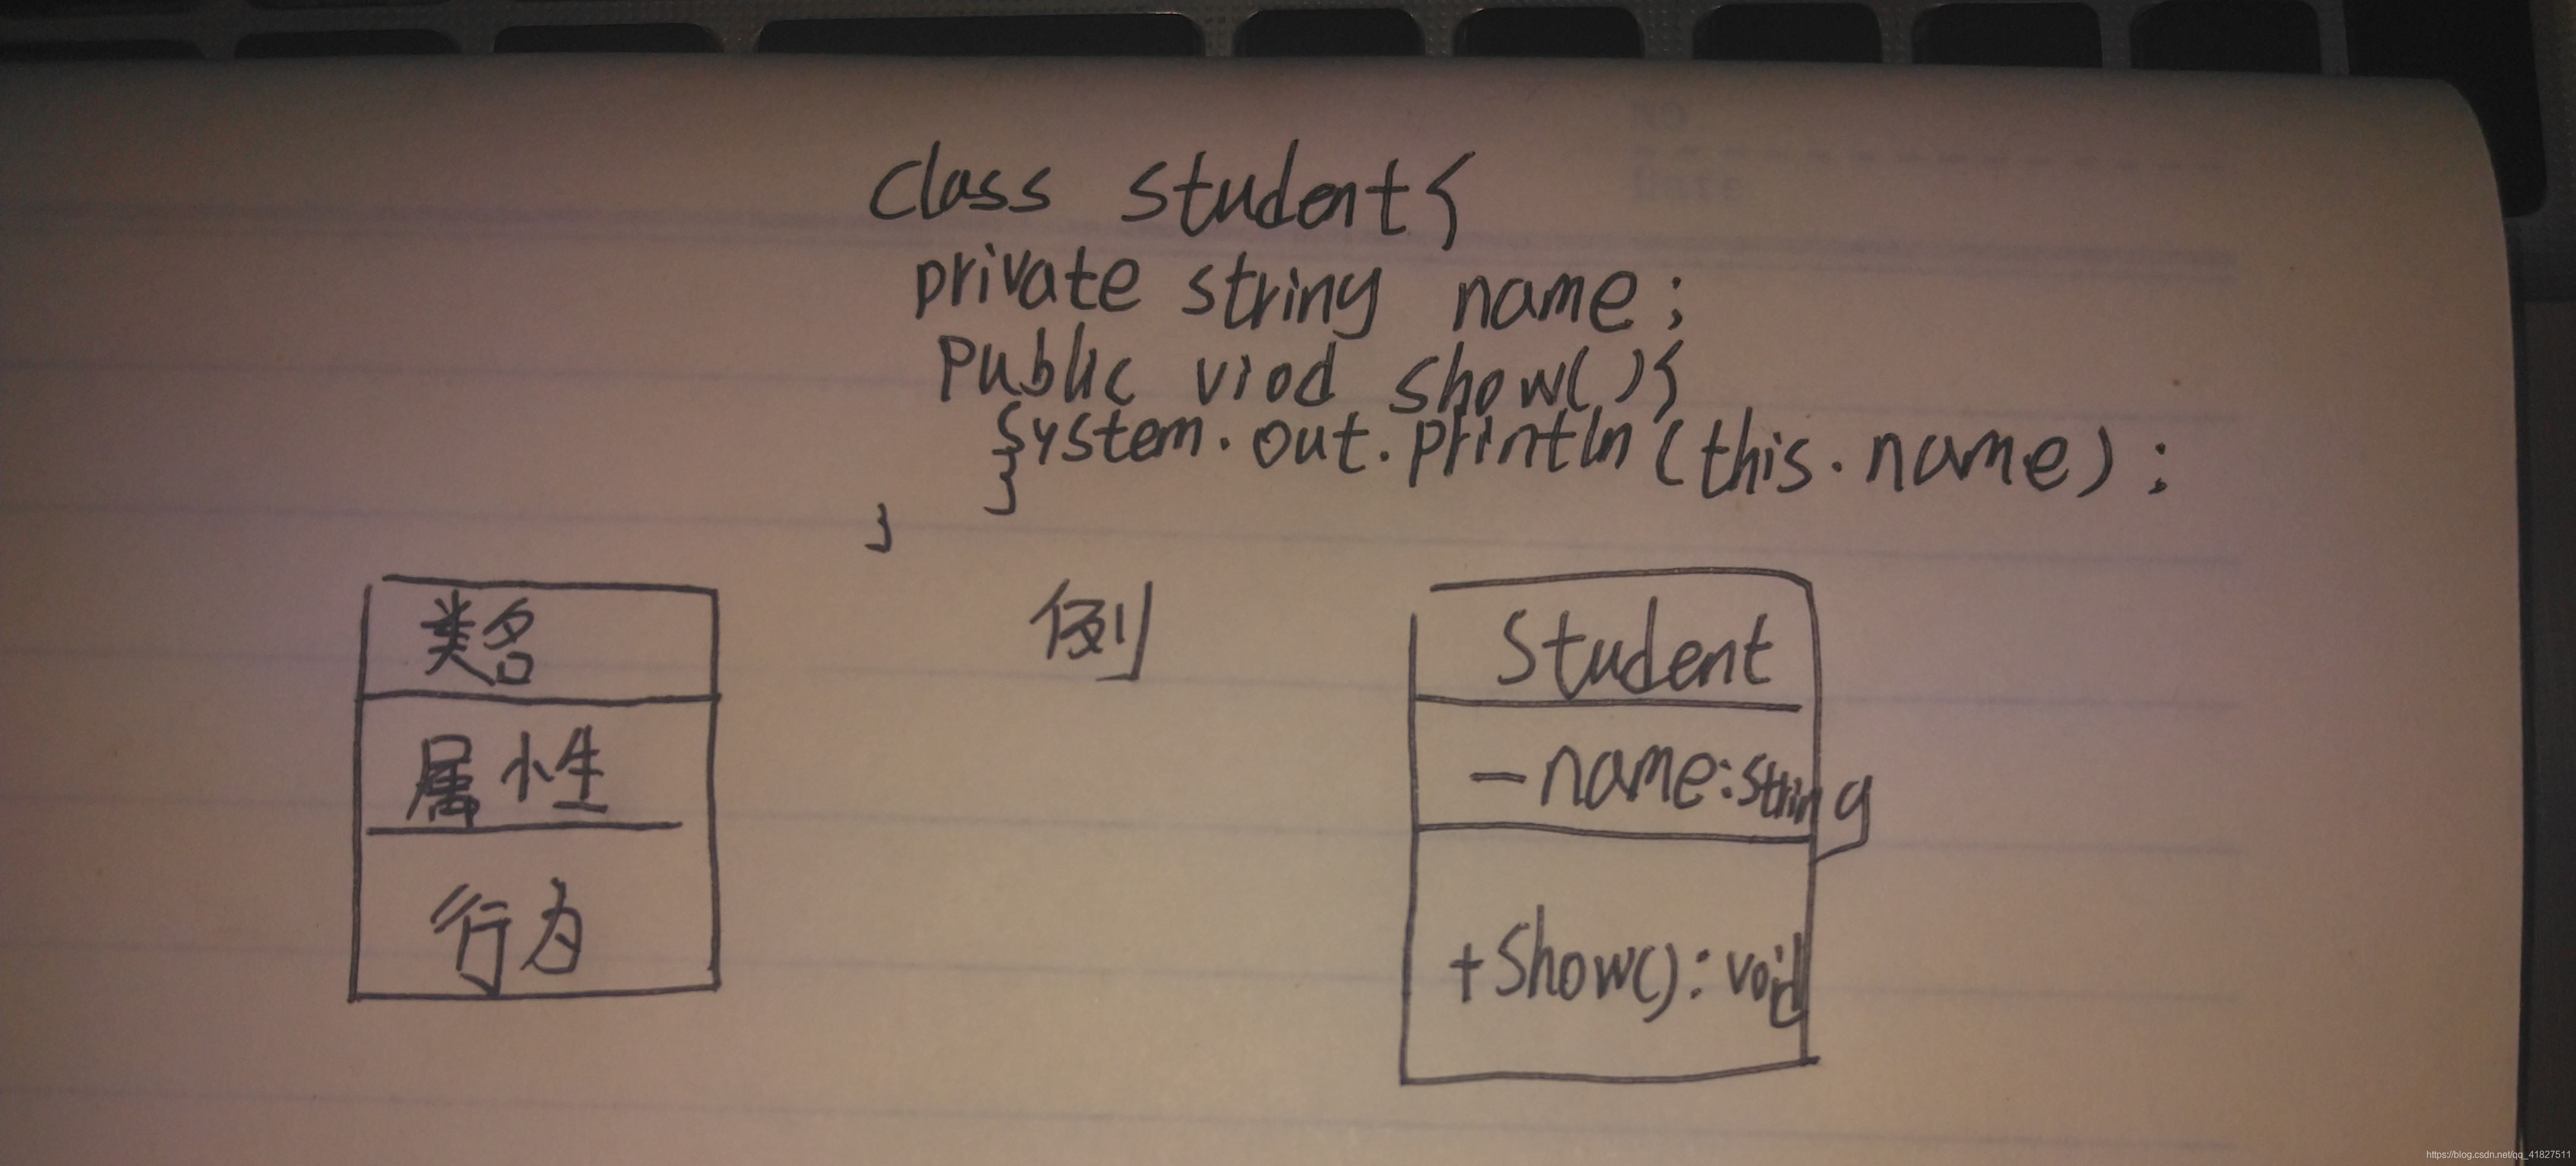 NO
Date
class student{
private string name;
public viod show(){
system.out.println(this.name);
}
}
类名
属性
行为
例
Student
-name:string
+show():void
https://blog.csdn.net/qq_41827511